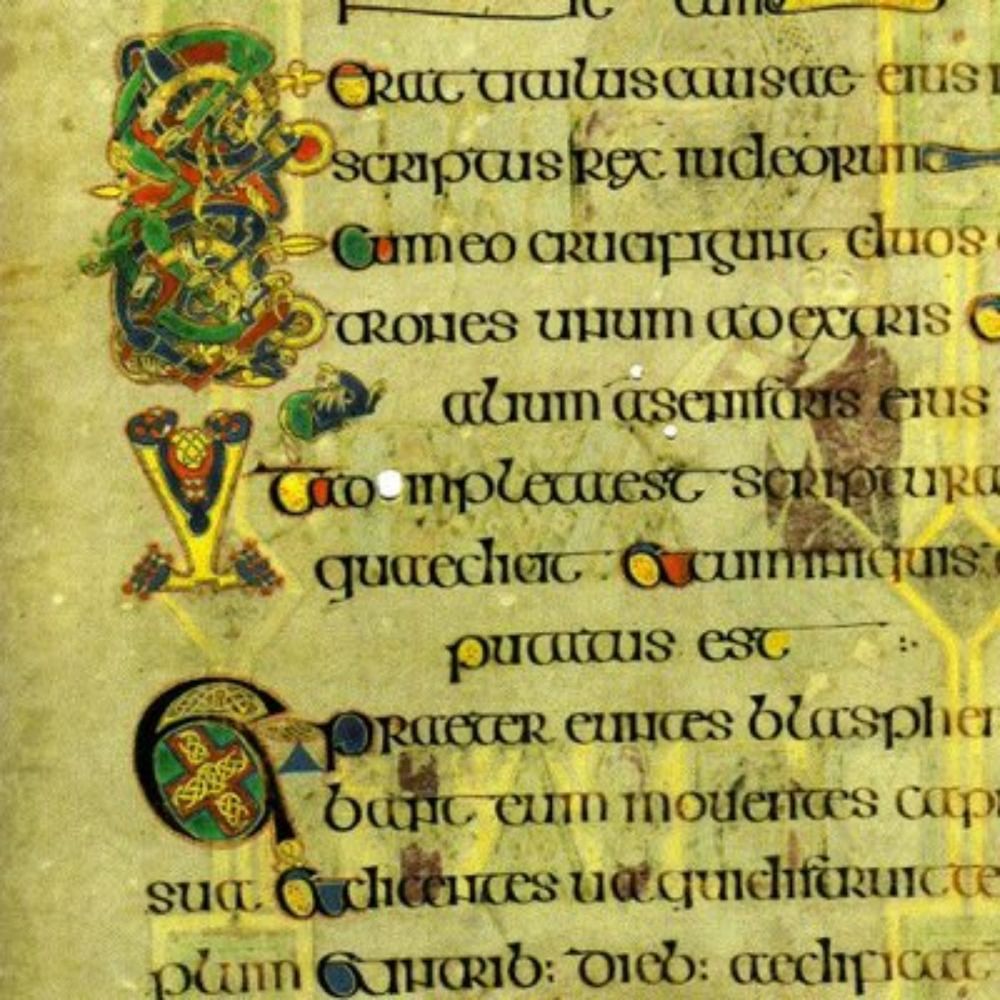 E Erat titulus causae eius
scriptus rex iudeorum
E Cum eo crucifigunt duos
atrones unum adextris
alium asenistris eius
V tadinpletaest scriptura
quaedicit et cuminiquis
putatus est :·
praeter euntes blasphem
bant eum mouentes capi
sua et dicentes ua qui distruit te
plum et intrib: dieb: aedificat